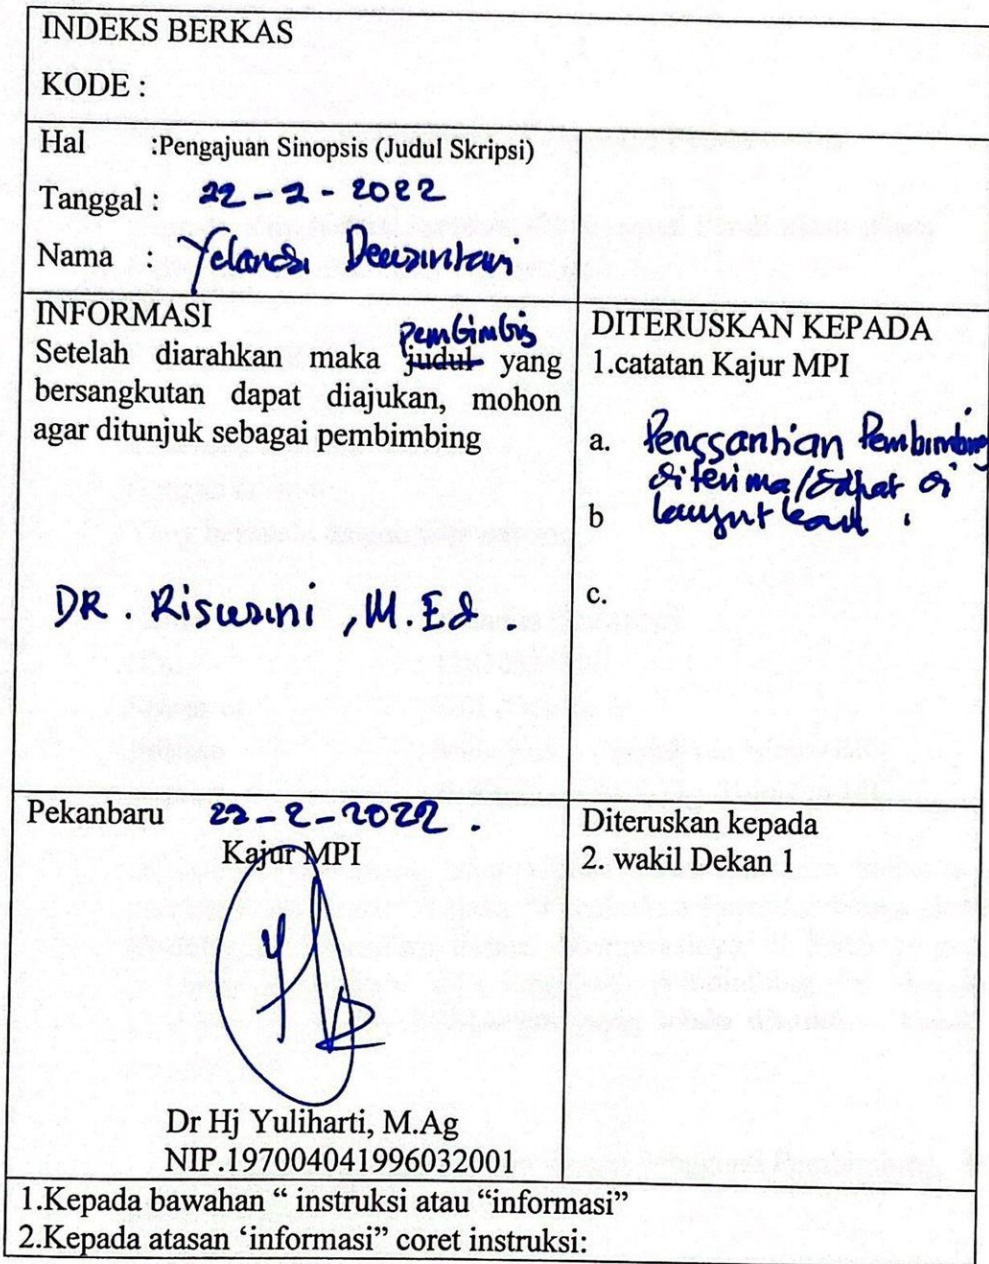 INDEKS BERKAS
KODE :
Hal :Pengajuan Sinopsis (Judul Skripsi)
Tanggal : 22-2-2022
Nama : Yelandi Dewintari
INFORMASI
Setelah diarahkan maka judul pembimbing yang
bersangkutan dapat diajukan, mohon
agar ditunjuk sebagai pembimbing
DR. Riswani, M.Ed.
DITERUSKAN KEPADA
1.catatan Kajur MPI
a. Penggantian Pembimbing
diterima/dapat di
b lanjutkan.
c.
Pekanbaru 22-2-2022.
Kajur MPI
Dr Hj Yuliharti, M.Ag
NIP.197004041996032001
Diteruskan kepada
2. wakil Dekan 1
1.Kepada bawahan “ instruksi atau “informasi”
2.Kepada atasan ‘informasi” coret instruksi: